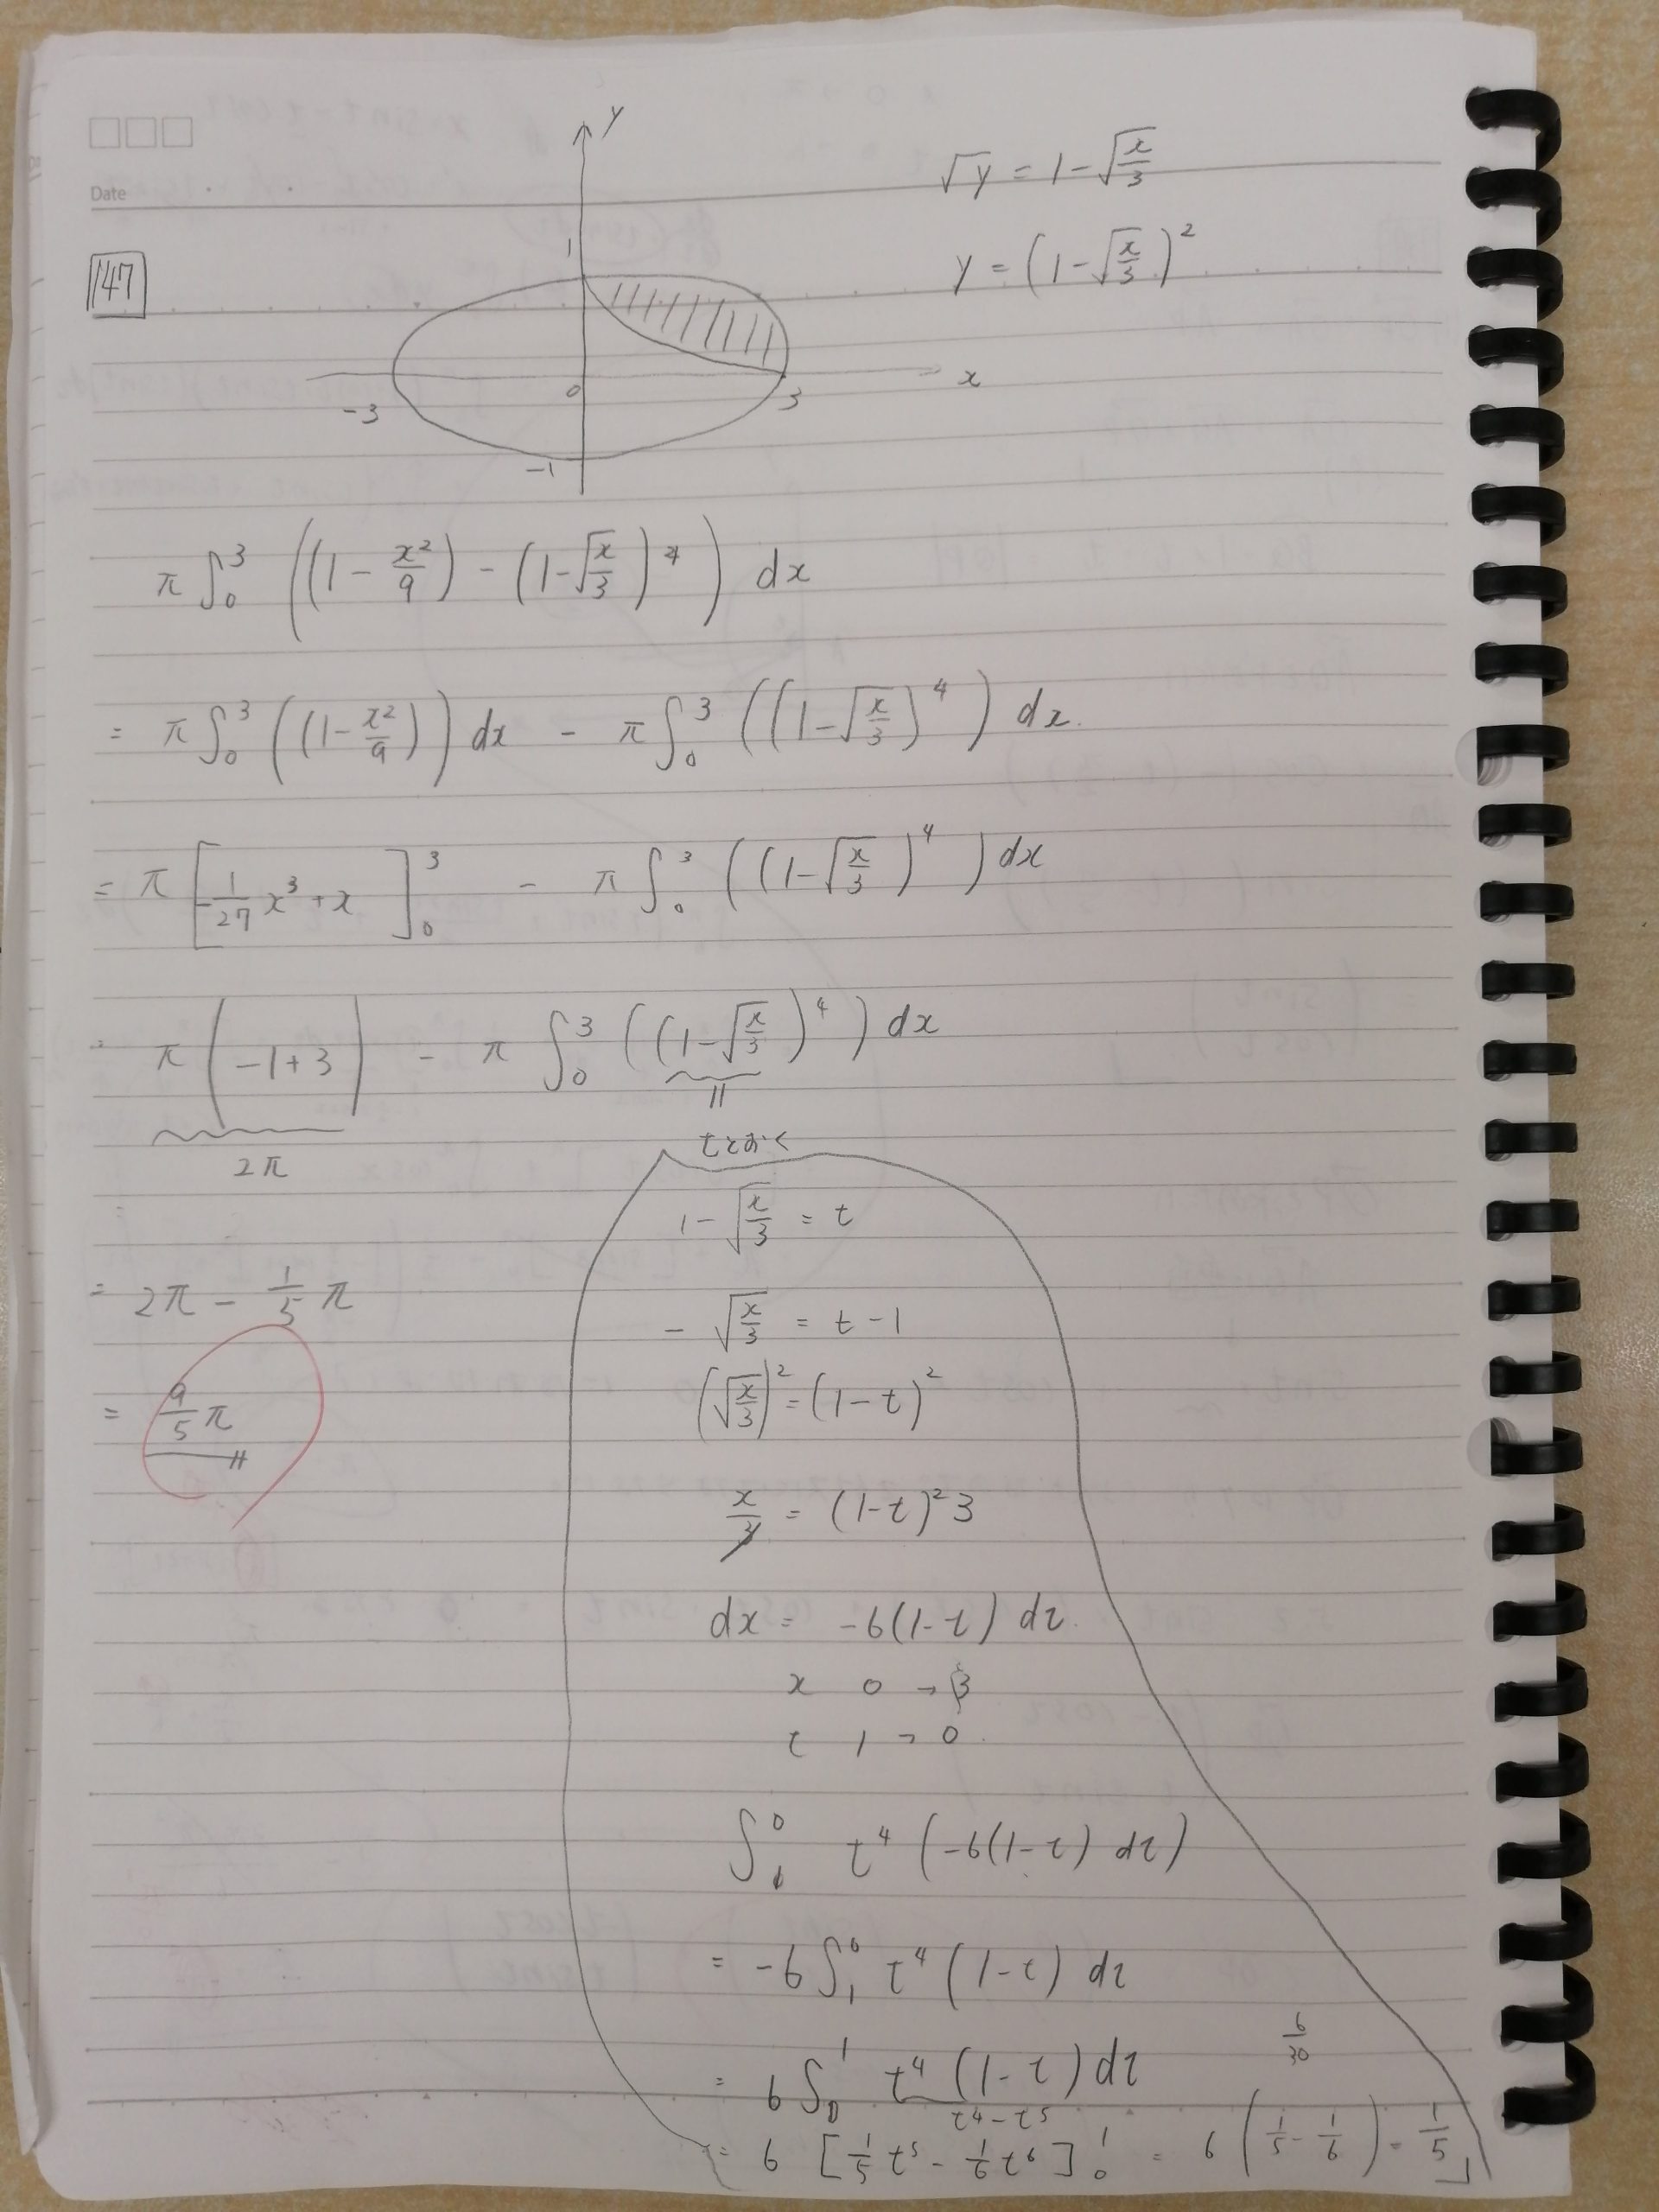 Date
147
y
1
0
-3
3
x
-1
√y = 1-√(x/3)
y = (1-√(x/3))²
π∫₀³ ((1 - x²/9) - (1-√(x/3))⁴) dx
= π∫₀³ ((1-x²/9)) dx - π∫₀³ ((1-√(x/3))⁴) dx.
= π [-1/27 x³+x]₀³ - π∫₀³ ((1-√(x/3))⁴) dx
= π (-1+3) - π ∫₀³ ((1-√(x/3))⁴) dx
2π
tとおく
1-√(x/3) = t
-√(x/3) = t-1
(√(x/3))² = (1-t)²
x/3 = (1-t)² 3
dx = -6(1-t) dt
x 0 → 3
t 1 → 0
∫₁⁰ t⁴ (-6(1-t) dt)
= -6∫₁⁰ t⁴ (1-t) dt
= 6∫₀¹ t⁴ (1-t) dt
t⁴-t⁵
6/30
= 6 [1/5 t⁵ - 1/6 t⁶]₀¹ = 6 (1/5 - 1/6) = 1/5
= 2π - 1/5 π
= 9/5 π